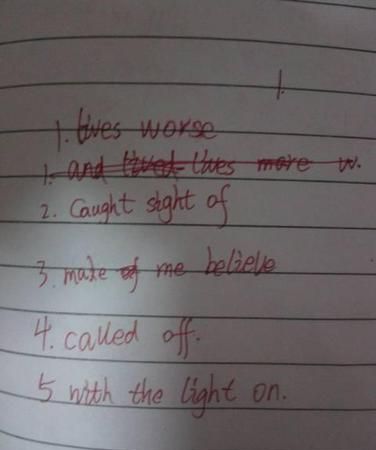 1.
1. lives worse
1. and lived lives more w.
2. Caught sight of
3. make of me believe
4. called off.
5 with the light on.